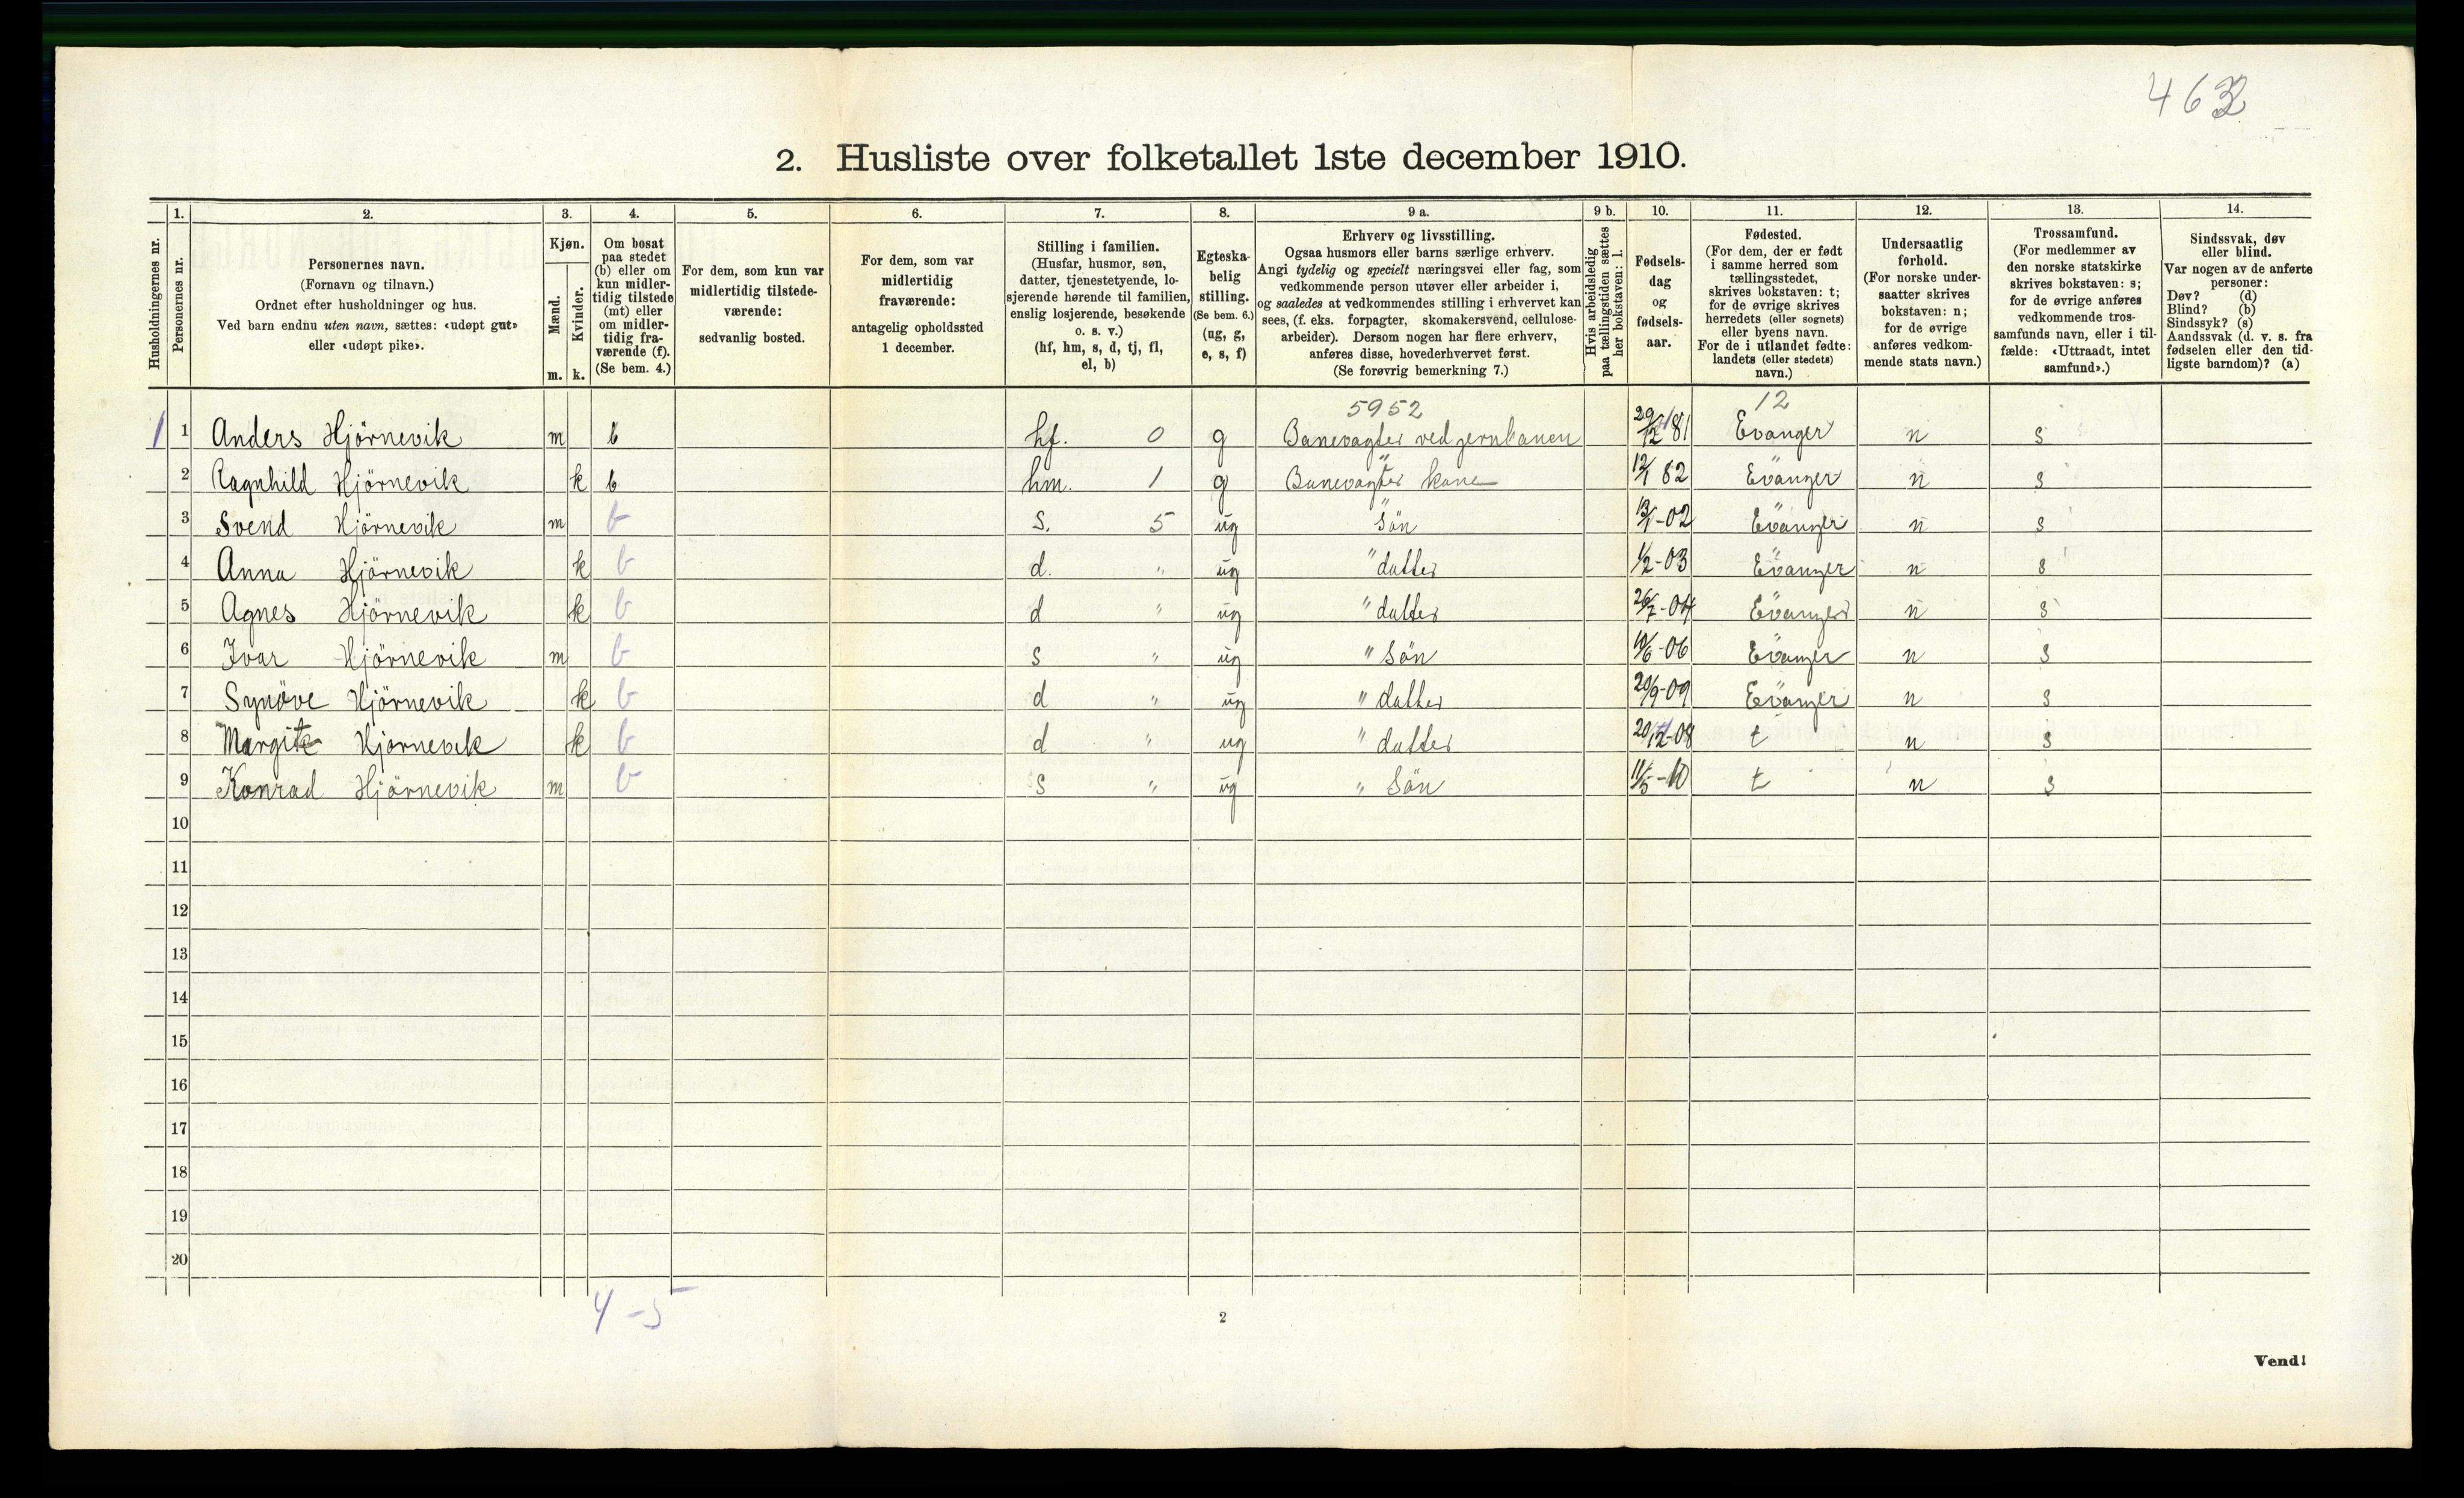 463
2. Husliste over folketallet 1ste december 1910.
Husholdningernes nr.
1. Personernes nr.
2. Personernes navn.
(Fornavn og tilnavn.)
Ordnet efter husholdninger og hus.
Ved barn endnu uten navn, sættes: «udøpt gut»
eller «udøpt pike».
3. Kjøn.
Mænd. m.
Kvinder. k.
4. Om bosat
paa stedet
(b) eller om
kun midler-
tidig tilstede
(mt) eller
om midler-
tidig fra-
værende (f).
(Se bem. 4.)
5. For dem, som kun var
midlertidig tilstede-
værende:
sedvanlig bosted.
6. For dem, som var
midlertidig
fraværende:
antagelig opholdssted
1 december.
7. Stilling i familien.
(Husfar, husmor, søn,
datter, tjenestetyende, lo-
sjerende hørende til familien,
enslig losjerende, besøkende
o. s. v.)
(hf, hm, s, d, tj, fl,
el, b)
8. Egteska-
belig
stilling.
(Se bem. 6.)
(ug, g,
e, s, f)
9 a. Erhverv og livsstilling.
Ogsaa husmors eller barns særlige erhverv.
Angi tydelig og specielt næringsvei eller fag, som
vedkommende person utøver eller arbeider i,
og saaledes at vedkommendes stilling i erhvervet kan
sees, (f. eks. forpagter, skomakersvend, cellulose-
arbeider). Dersom nogen har flere erhverv,
anføres disse, hovederhvervet først.
(Se forøvrig bemerkning 7.)
9 b. Hvis arbeidsledig
paa tællingstiden sættes
her bokstaven: l.
10. Fødsels-
dag
og
fødsels-
aar.
11. Fødested.
(For dem, der er født
i samme herred som
tællingsstedet,
skrives bokstaven: t;
for de øvrige skrives
herredets (eller sognets)
eller byens navn.
For de i utlandet fødte:
landets (eller stedets)
navn.)
12. Undersaatlig
forhold.
(For norske under-
saatter skrives
bokstaven: n;
for de øvrige
anføres vedkom-
mende stats navn.)
13. Trossamfund.
(For medlemmer av
den norske statskirke
skrives bokstaven: s;
for de øvrige anføres
vedkommende tros-
samfunds navn, eller i til-
fælde: «Uttraadt, intet
samfund».)
14. Sindssvak, døv
eller blind.
Var nogen av de anførte
personer:
Døv? (d)
Blind? (b)
Sindssyk? (s)
Aandssvak (d. v. s. fra
fødselen eller den tid-
ligste barndom)? (a)
5952 12
1 1 Anders Hjörnevik m b hf. 0 g Banevagter ved jernbanen 29/12 81 Evanger n s
2 Ragnhild Hjörnevik k b hm. 1 g Banevagter kone 12/1 82 Evanger n s
3 Svend Hjörnevik m b s. 5 ug " Sön 13/1-02 Evanger n s
4 Anna Hjörnevik k b d. " ug " datter 1/2-03 Evanger n s
5 Agnes Hjörnevik k b d " ug " datter 26/7-04 Evanger n s
6 Ivar Hjörnevik m b s " ug " Sön 10/6-06 Evanger n s
7 Synöve Hjörnevik k b d " ug " datter 20/9-09 Evanger n s
8 Margit Hjörnevik k b d " ug " datter 20/12-08 t n s
9 Konrad Hjörnevik m b s " ug " Sön 11/5-10 t n s
10
11
12
13
14
15
16
17
18
19
20
4-5
2
Vend!